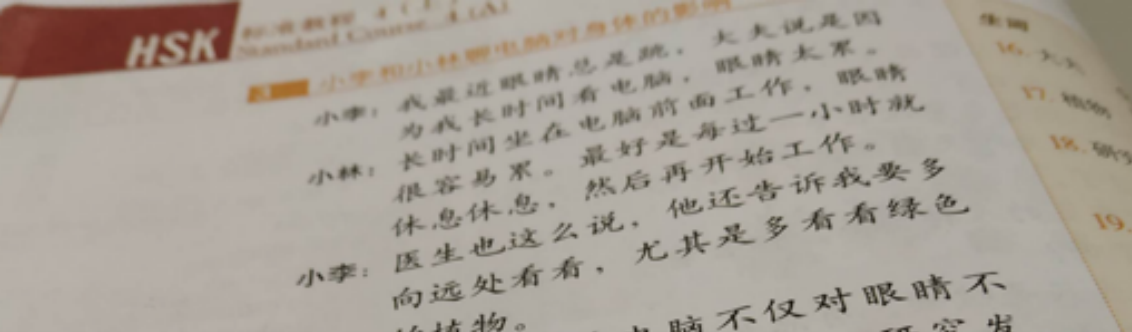 HSK 标准教程 4（上）
Standard Course 4 (A)
3 小李和小林聊电脑对身体的影响
小李：我最近眼睛总是跳，大夫说是因
为我长时间看电脑，眼睛太累。
小林：长时间坐在电脑前面工作，眼睛
很容易累。最好是每过一小时就
休息休息，然后再开始工作。
小李：医生也这么说，他还告诉我要多
向远处看看，尤其是多看看绿色
的植物。
电脑不仅对眼睛不
研究发
生词
16. 大夫
17. 植物
18. 研究
19.